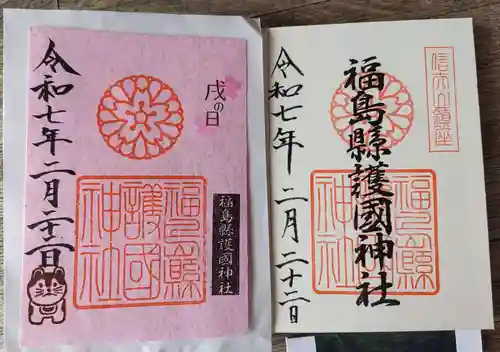 戌の日
福島縣護國神社
令和七年二月二十二日
福島縣護國神社
信夫山鎮座
福島縣護國神社
福島縣護國神社
令和七年二月二十二日